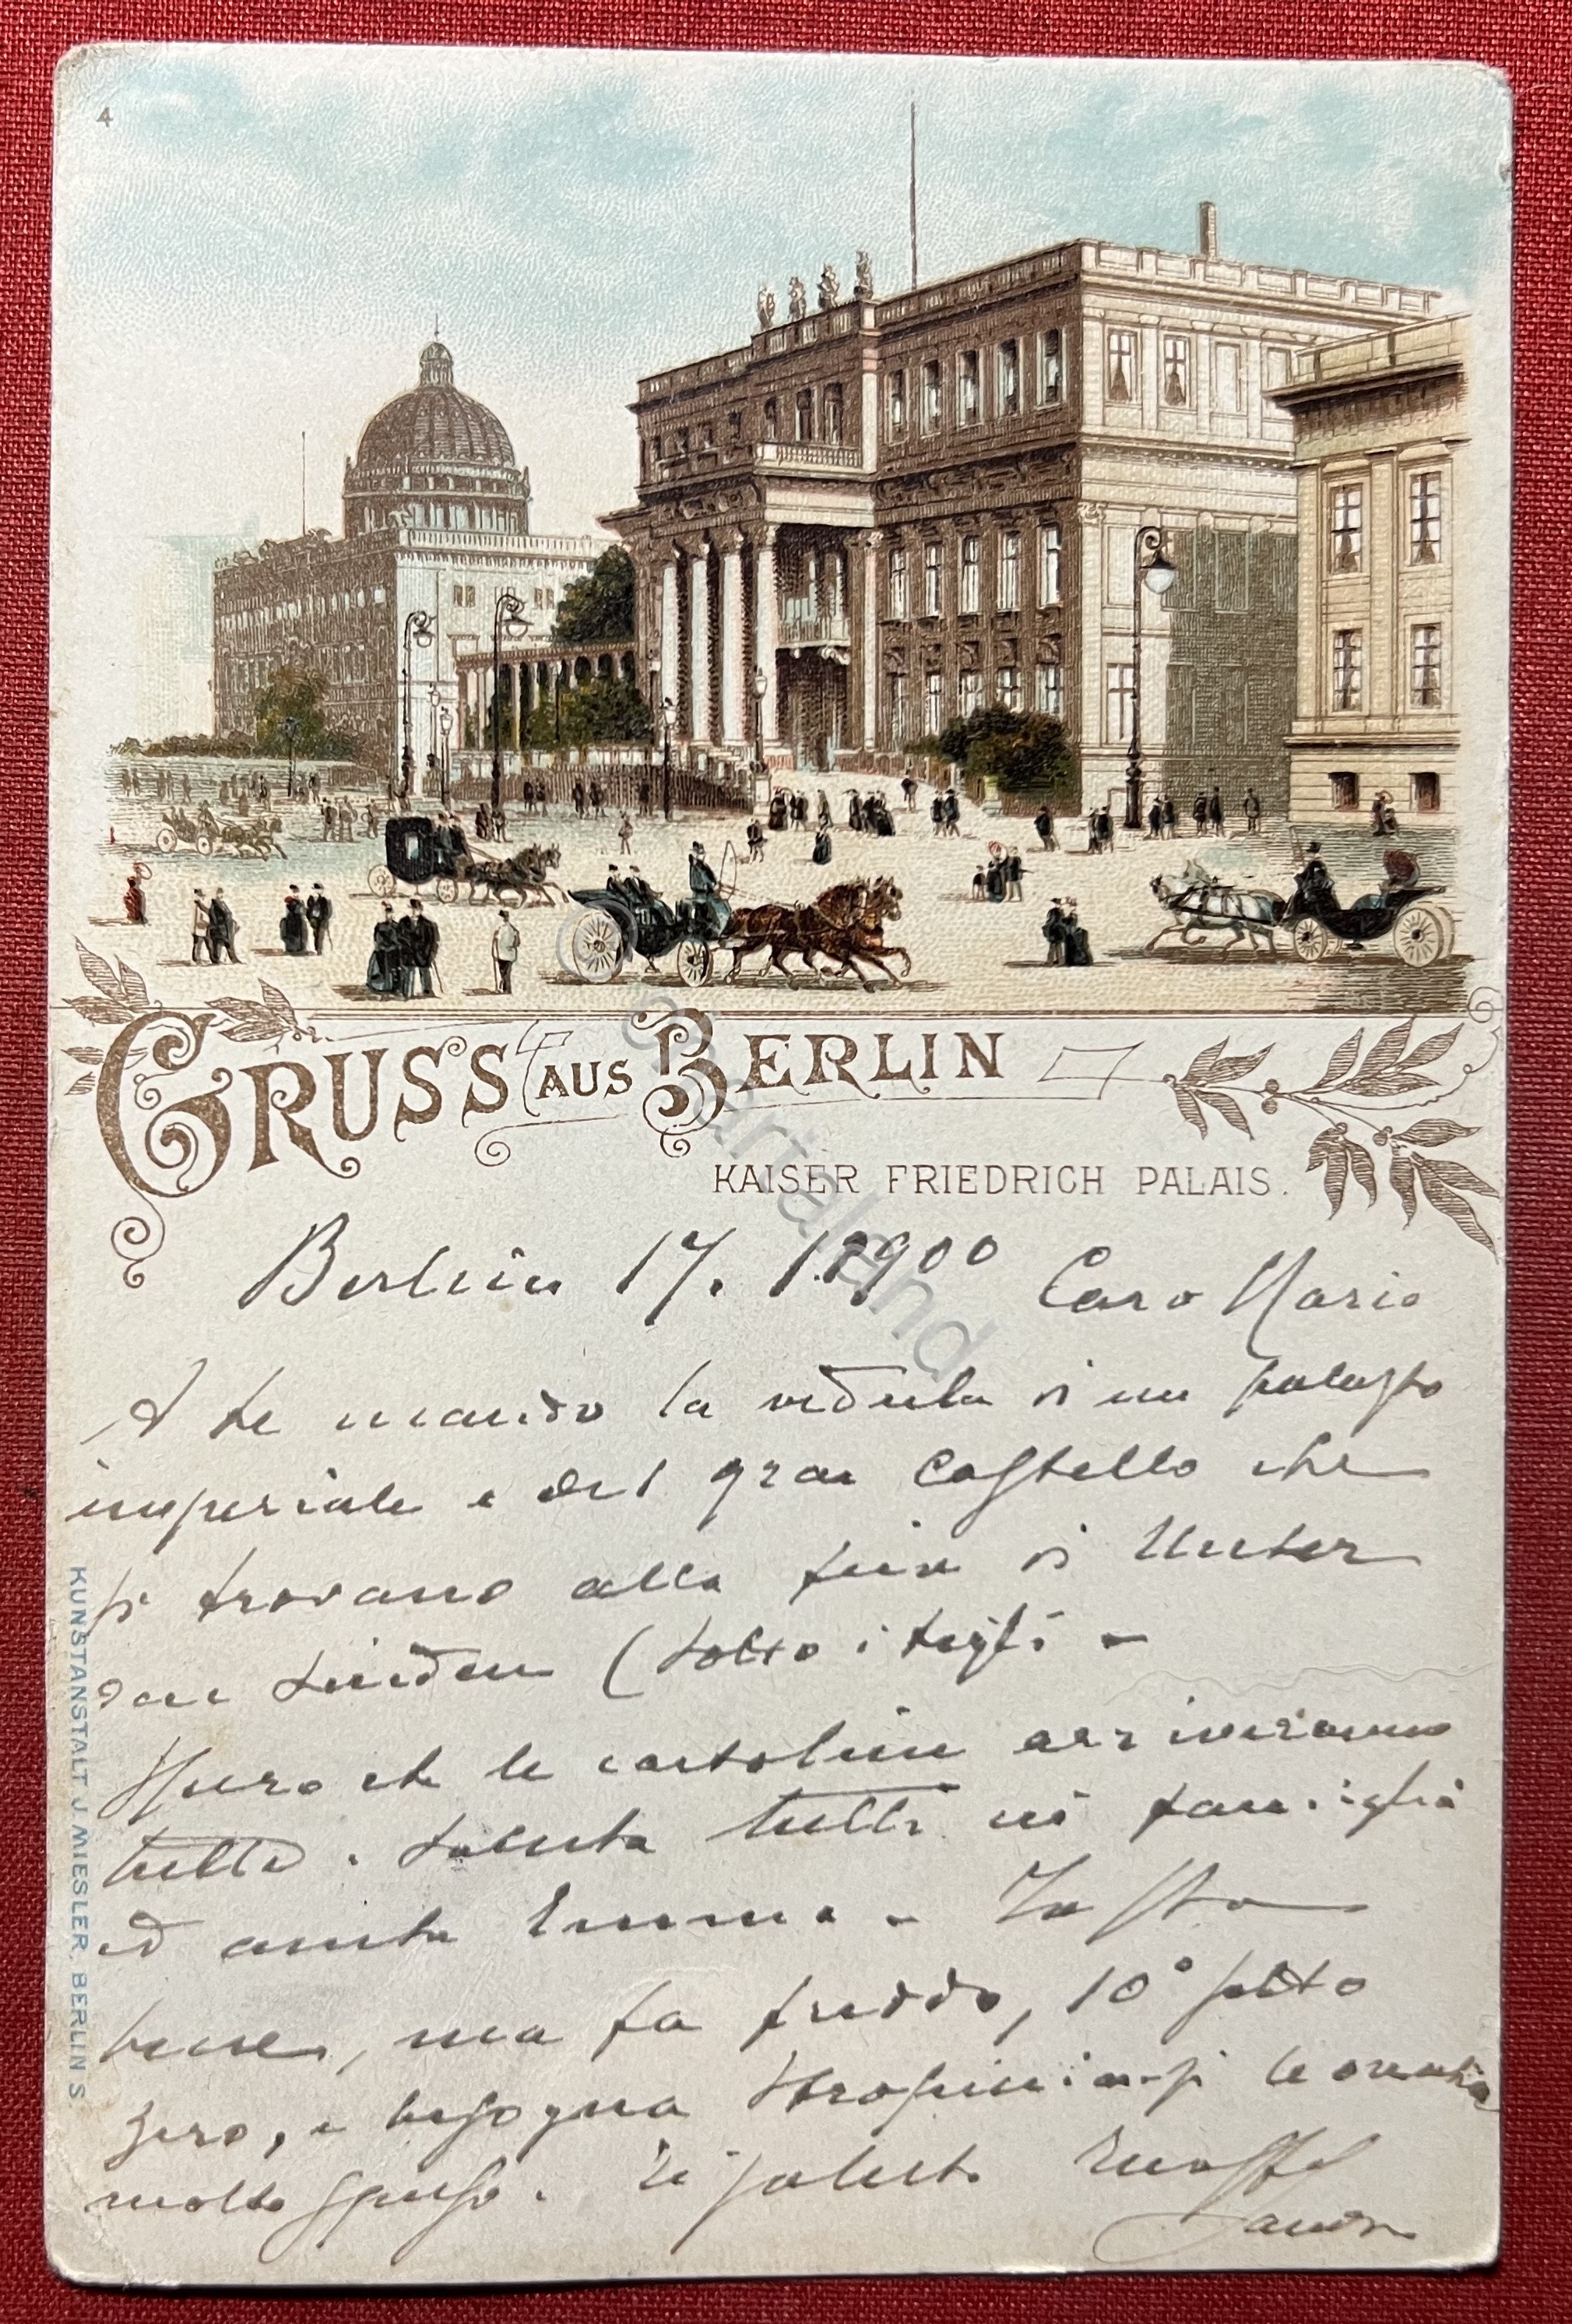 4
GRUSS AUS BERLIN
KAISER FRIEDRICH PALAIS.
Berlin 17. 1. 1900 Caro Mario
A te mando la veduta di un palazzo
imperiale e del gran Castello che
si trovano alla fine di Unter
den Linden (sotto i tigli -
Spero che le cartoline arriveranno
tutte. Saluta tutti in famiglia
ed anche Emma. - Io sto
bene, ma fa freddo, 10° sotto
zero, e bisogna stropicciarsi le orecchie
molto spesso. Ti saluto
KUNSTANSTALT J. MIESLER, BERLIN S.
© cartaland